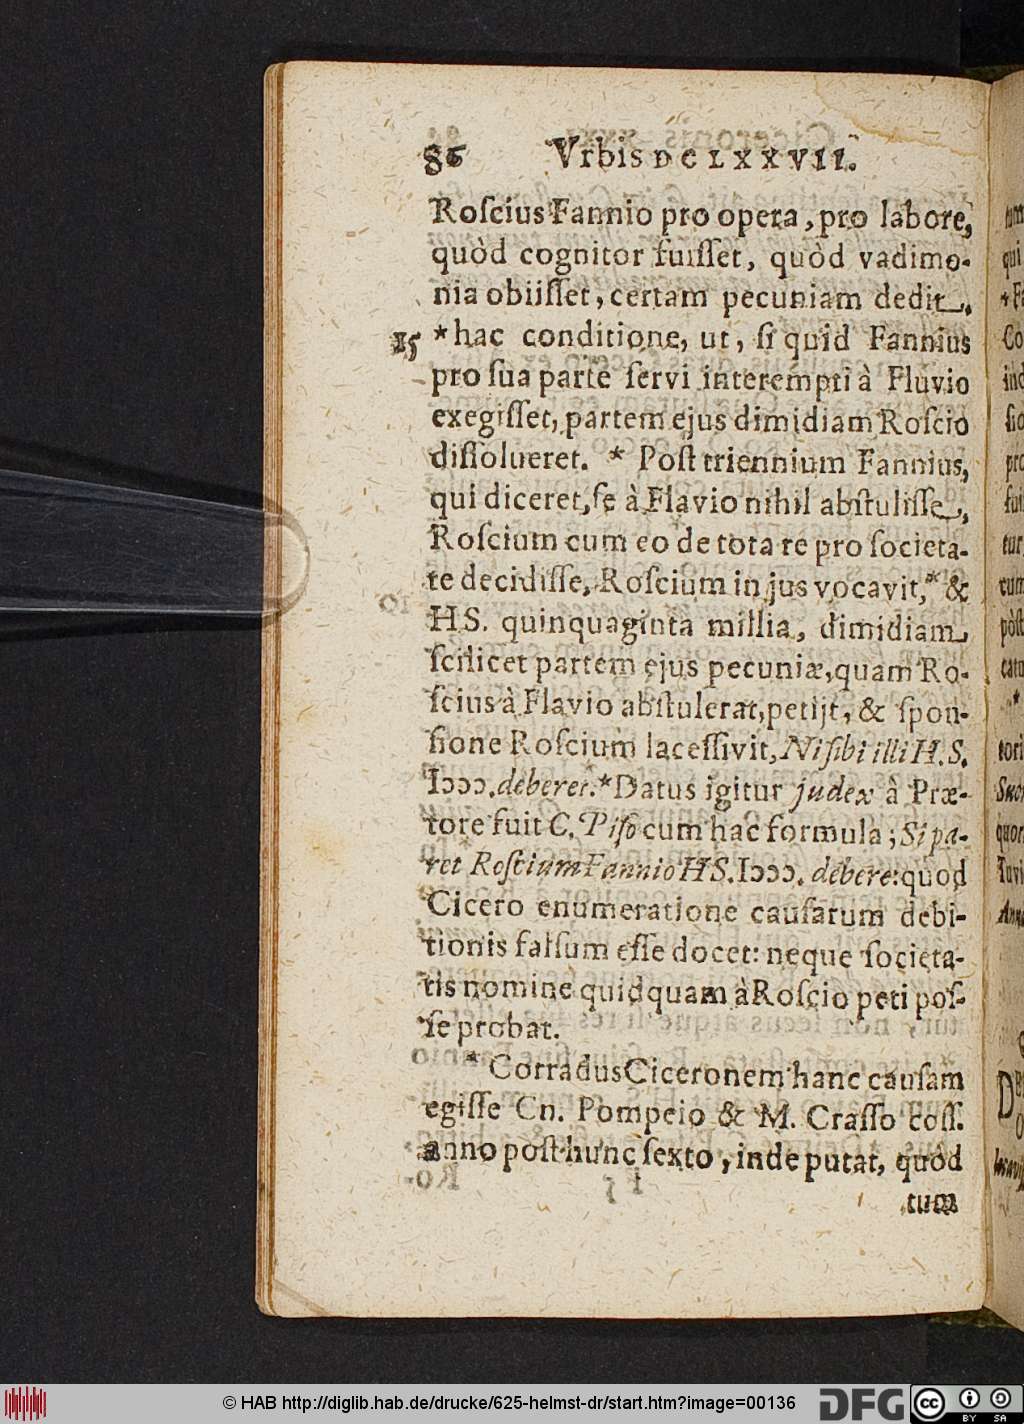 86 Vrbis DCLXXVII.
Roſcius Fannio pro opera, pro labore,
quòd cognitor fuiſſet, quòd vadimo-
nia obiiſſet, certam pecuniam dedit,
15 *hac conditione, ut, ſi quid Fannius
pro ſua parte ſervi interempti à Fluvio
exegiſſet, partem ejus dimidiam Roſcio
diſſolueret. * Poſt triennium Fannius,
qui diceret, ſe à Flavio nihil abſtuliſſe,
Roſcium cum eo de tota re pro ſocieta-
te decidiſſe, Roſcium in jus vocavit,* &
HS. quinquaginta millia, dimidiam
ſcilicet partem ejus pecuniæ, quam Ro-
ſcius à Flavio abſtulerat, petijt, & ſpon-
ſione Roſcium laceſſivit, Ni ſibi illi H.S.
Iↄↄↄ. deberet.*Datus igitur judex à Præ-
tore fuit C. Piſo cum hac formula; Si pa-
ret Roſcium Fannio HS. Iↄↄↄ. debere: quod
Cicero enumeratione cauſarum debi-
tionis falſum eſſe docet: neque ſocieta-
tis nomine quidquam à Roſcio peti poſ-
ſe probat.
* Corradus Ciceronem hanc cauſam
egiſſe Cn. Pompeio & M. Craſſo coſſ.
anno poſt hunc ſexto, inde putat, quòd
tum
© HAB http://diglib.hab.de/drucke/625-helmst-dr/start.htm?image=00136
DFG
cc
BY SA